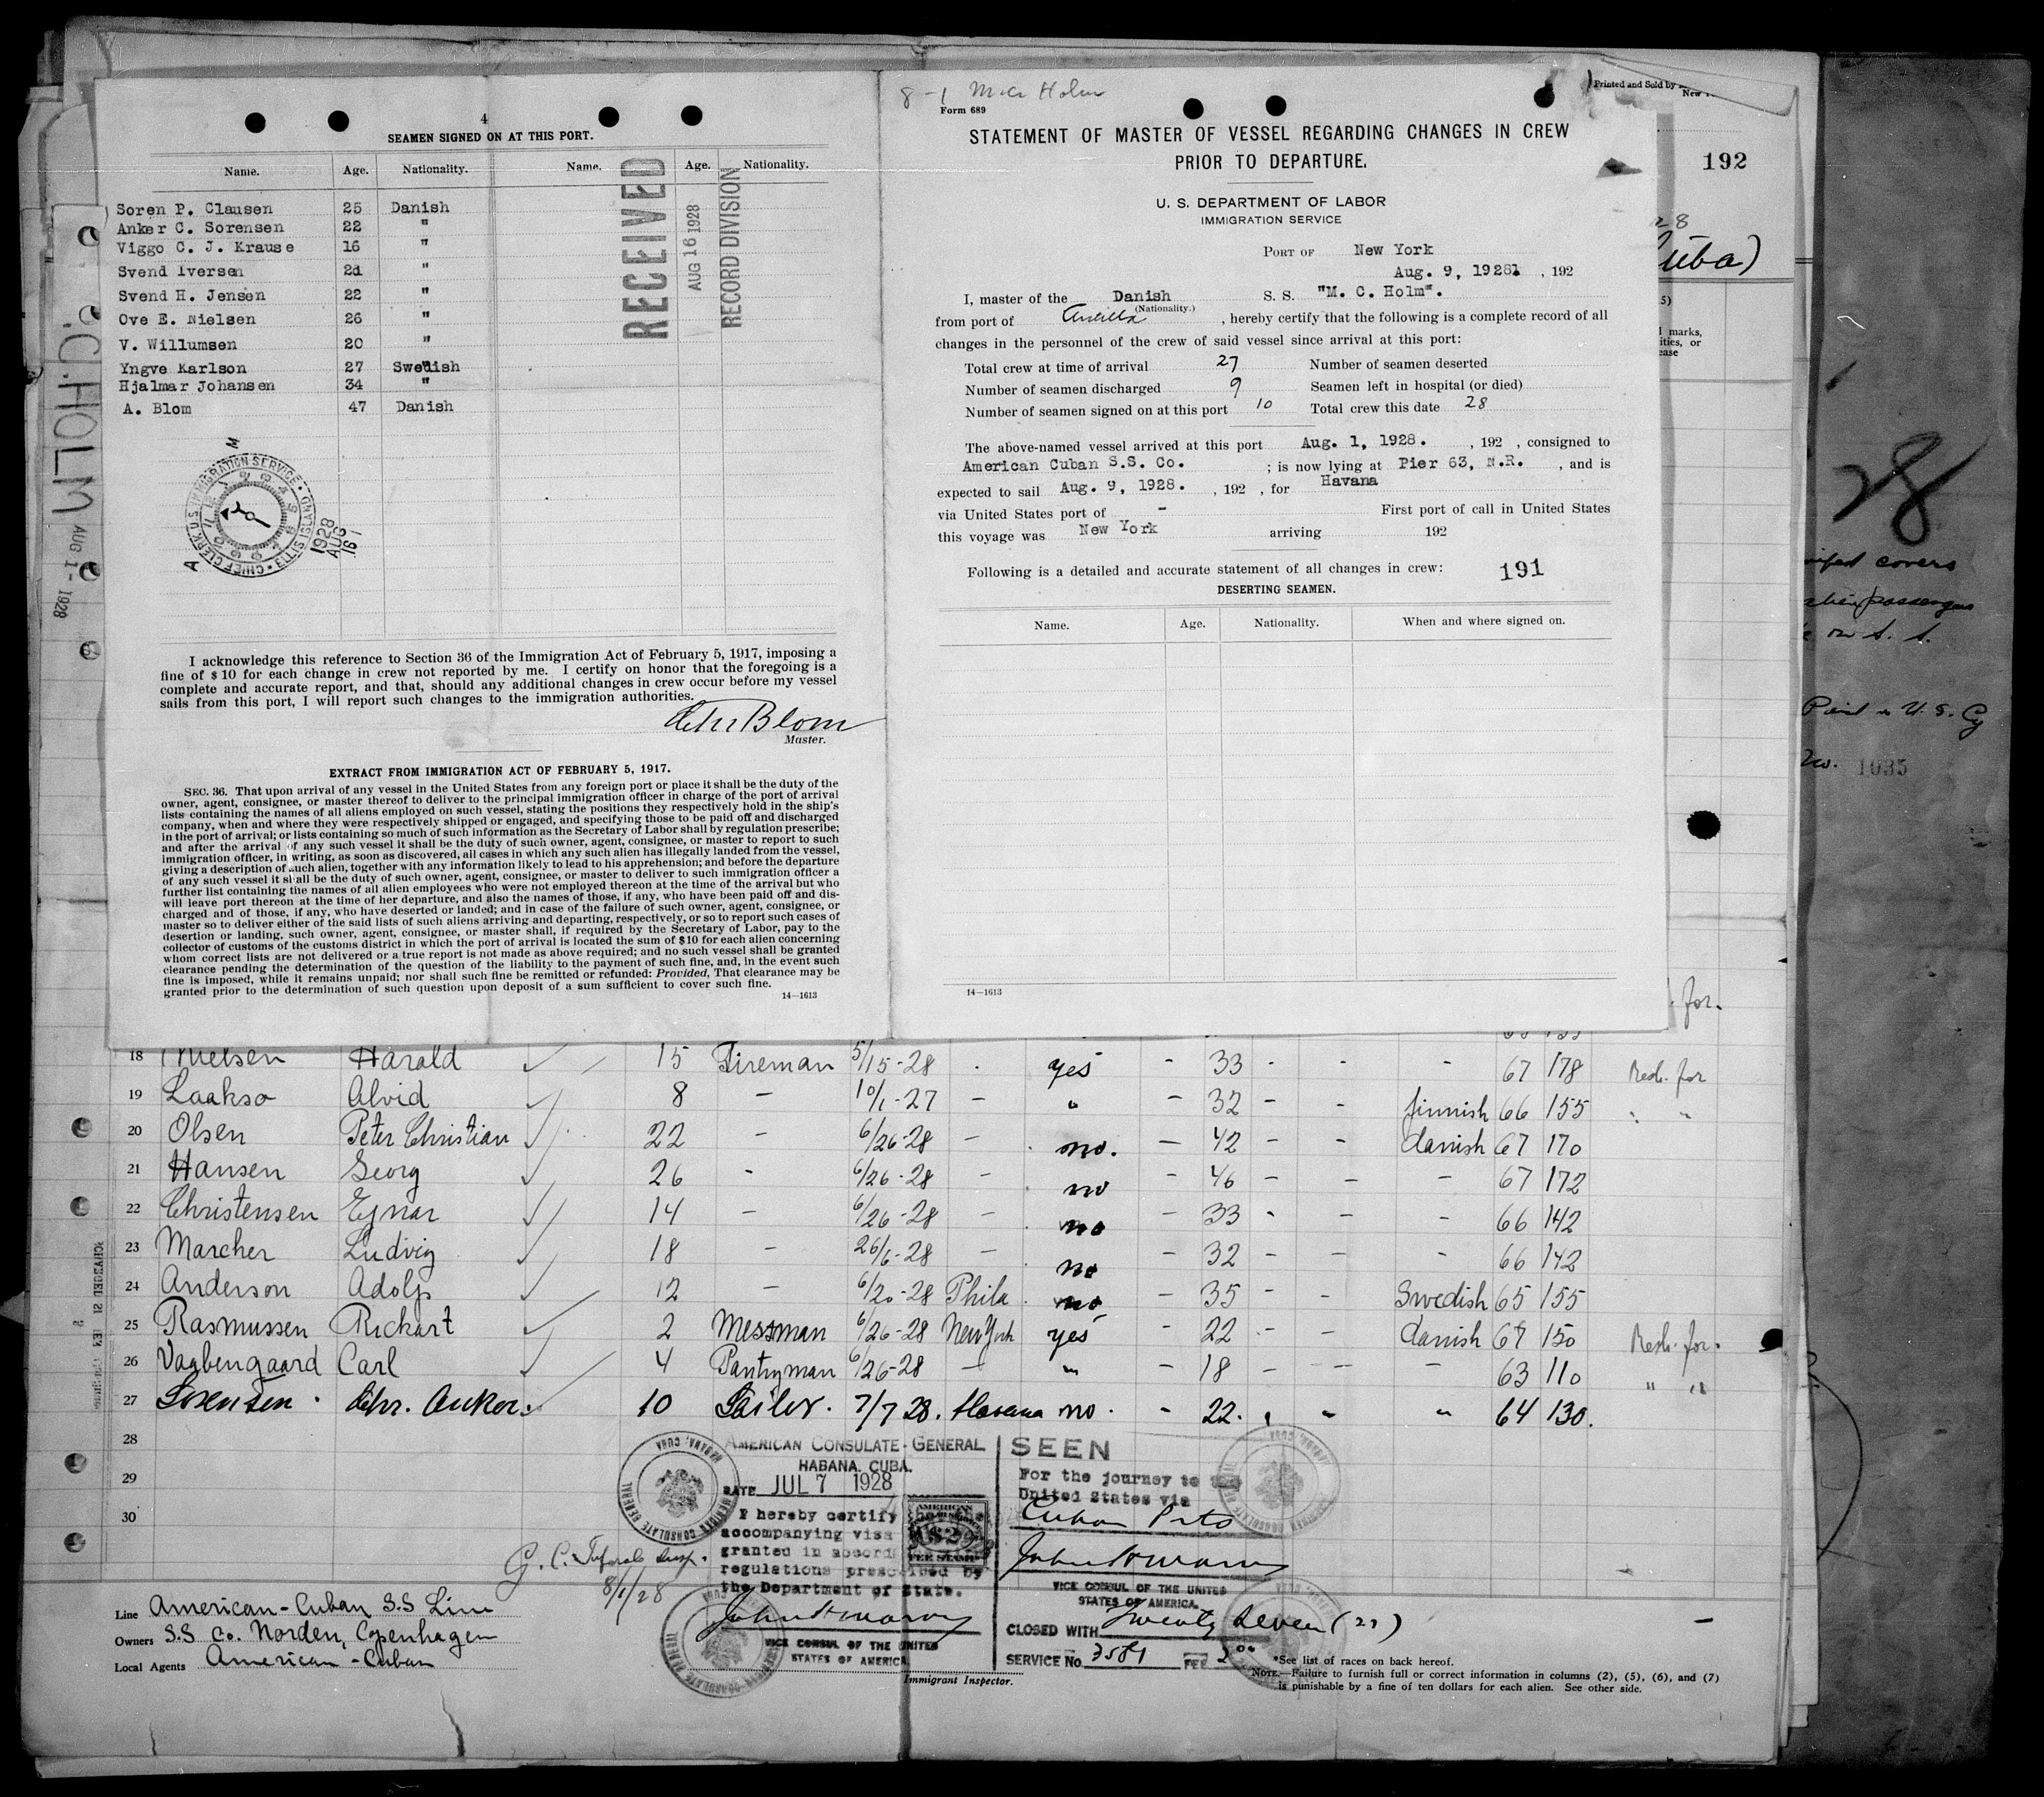 4
SEAMEN SIGNED ON AT THIS PORT.
Name. Age. Nationality. Name. Age. Nationality.
Soren P. Clausen 25 Danish
Anker C. Sorensen 22 "
Viggo C. J. Krause 16 "
Svend Iversen "
Svend H. Jensen 22 "
Ove E. Nielsen 26 "
V. Willumsen 20 "
Yngve Karlson 27 Swedish
Hjalmar Johansen 34 "
A. Blom 47 Danish
RECEIVED
AUG 16 1928
RECORD DIVISION
CHIEF CLERK U.S IMMIGRATION SERVICE • ELLIS ISLAND •
1928
AUG
16
I acknowledge this reference to Section 36 of the Immigration Act of February 5, 1917, imposing a
fine of $10 for each change in crew not reported by me. I certify on honor that the foregoing is a
complete and accurate report, and that, should any additional changes in crew occur before my vessel
sails from this port, I will report such changes to the immigration authorities.
Blom
Master.
EXTRACT FROM IMMIGRATION ACT OF FEBRUARY 5, 1917.
SEC. 36. That upon arrival of any vessel in the United States from any foreign port or place it shall be the duty of the
owner, agent, consignee, or master thereof to deliver to the principal immigration officer in charge of the port of arrival
lists containing the names of all aliens employed on such vessel, stating the positions they respectively hold in the ship's
company, when and where they were respectively shipped or engaged, and specifying those to be paid off and discharged
in the port of arrival; or lists containing so much of such information as the Secretary of Labor shall by regulation prescribe;
and after the arrival of any such vessel it shall be the duty of such owner, agent, consignee, or master to report to such
immigration officer, in writing, as soon as discovered, all cases in which any such alien has illegally landed from the vessel,
giving a description of such alien, together with any information likely to lead to his apprehension; and before the departure
of any such vessel it shall be the duty of such owner, agent, consignee, or master to deliver to such immigration officer a
further list containing the names of all alien employees who were not employed thereon at the time of the arrival but who
will leave port thereon at the time of her departure, and also the names of those, if any, who have been paid off and dis-
charged and of those, if any, who have deserted or landed; and in case of the failure of such owner, agent, consignee, or
master so to deliver either of the said lists of such aliens arriving and departing, respectively, or so to report such cases of
desertion or landing, such owner, agent, consignee, or master shall, if required by the Secretary of Labor, pay to the
collector of customs of the customs district in which the port of arrival is located the sum of $10 for each alien concerning
whom correct lists are not delivered or a true report is not made as above required; and no such vessel shall be granted
clearance pending the determination of the question of the liability to the payment of such fine, and, in the event such
fine is imposed, while it remains unpaid; nor shall such fine be remitted or refunded: Provided, That clearance may be
granted prior to the determination of such question upon deposit of a sum sufficient to cover such fine.
14—1613
C. HOLM
AUG 1 - 1928
8-1 Holm
Form 689
STATEMENT OF MASTER OF VESSEL REGARDING CHANGES IN CREW
PRIOR TO DEPARTURE.
U. S. DEPARTMENT OF LABOR
IMMIGRATION SERVICE
PORT OF New York
Aug. 9, 1928 , 192
I, master of the Danish S. S. "M. C. Holm".
(Nationality.)
from port of Antilla , hereby certify that the following is a complete record of all
changes in the personnel of the crew of said vessel since arrival at this port:
Total crew at time of arrival 27 Number of seamen deserted
Number of seamen discharged 9 Seamen left in hospital (or died)
Number of seamen signed on at this port 10 Total crew this date 28
The above-named vessel arrived at this port Aug. 1, 1928. , 192 , consigned to
American Cuban S.S. Co. ; is now lying at Pier 63, N.R. , and is
expected to sail Aug. 9, 1928. , 192 , for Havana
via United States port of - First port of call in United States
this voyage was New York arriving 192
Following is a detailed and accurate statement of all changes in crew: 191
DESERTING SEAMEN.
Name. Age. Nationality. When and where signed on.
14—1613
Printed and Sold by
New
192
28
Cuba)
5)
marks,
ities, or
ease
28
covers
passengers
S. S.
Paid U.S. Cy
No. 1035
for.
18 Nielsen Harald 15 Fireman 5/15-28 yes - 33 - - - 67 178 Resh. for
19 Laakso Alvid 8 - 10/1-27 - " - 32 - - finnish 66 155 " "
20 Olsen Peter Christian 22 - 6/26-28 - no. - 42 - - danish 67 170
21 Hansen Georg 26 - 6/26-28 - no - 46 - - - 67 172
22 Christensen Ejnar 14 - 6/26-28 - no - 33 - - - 66 142
23 Marcher Ludvig 18 - 26/6-28 - no - 32 - - - 66 142
24 Anderson Adolf 12 - 6/20-28 Phila no - 35 - - Swedish 65 155
25 Rasmussen Rickart 2 Messman 6/26-28 New York yes - 22 - - danish 67 150 Resh. for.
26 Vagbengaard Carl 4 Pantryman 6/26-28 - " - 18 - - - 63 110 " "
27 Sorensen Chr. Anker. 10 Sailer. 7/7 28. Havana no. - 22. " " 64 130.
28
29
30
AMERICAN CONSULATE-GENERAL
HABANA, CUBA.
DATE JUL 7 1928
I hereby certify
accompanying visa
granted in accord
regulations prescribed by
the Department of State.
VICE CONSUL OF THE UNITED
STATES OF AMERICA.
AMERICAN
$2
FEE STAMP
SEEN
For the journey to the
United States via
Cuban Pts
VICE CONSUL OF THE UNITED
STATES OF AMERICA.
CLOSED WITH Twenty Seven (27)
SERVICE No. 3581 FEE 2.00
AMERICAN CONSULATE GENERAL HABANA, CUBA
G. C. Insp.
8/1/28
Line American-Cuban S.S Line
Owners S.S Co. Norden, Copenhagen
Local Agents American-Cuban
Immigrant Inspector.
*See list of races on back hereof.
NOTE.—Failure to furnish full or correct information in columns (2), (5), (6), and (7)
is punishable by a fine of ten dollars for each alien. See other side.